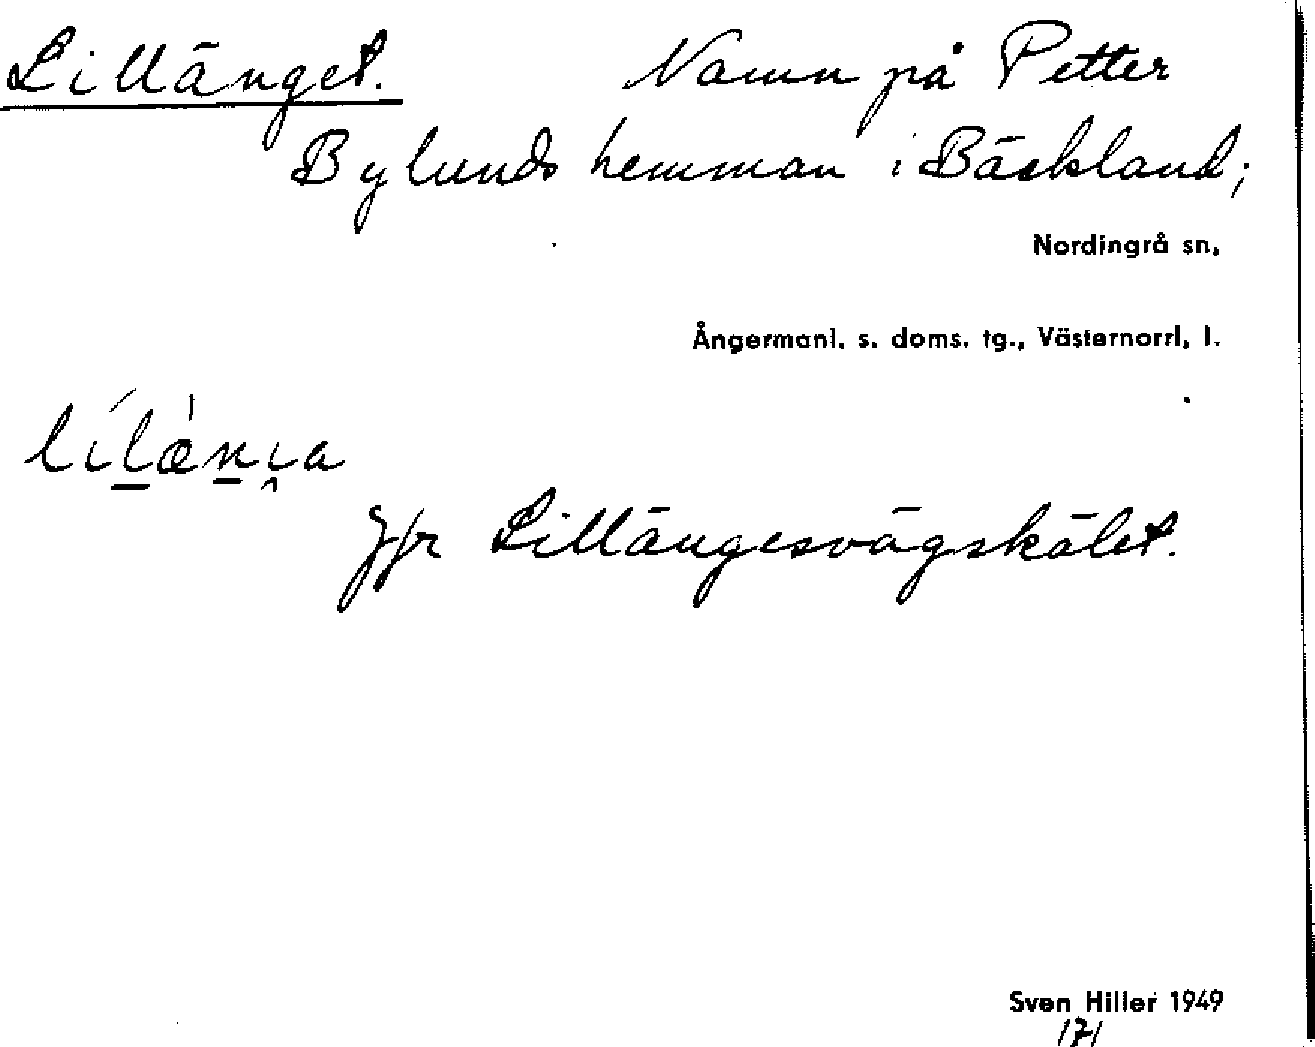 Lillänget. Namn på Petter
Bylunds hemman i Bäckland;
Nordingrå sn,
Ångermanl. s. doms. tg., Västernorrl. l.
Jfr Lillängesvägskälet.
Sven Hiller 1949
171